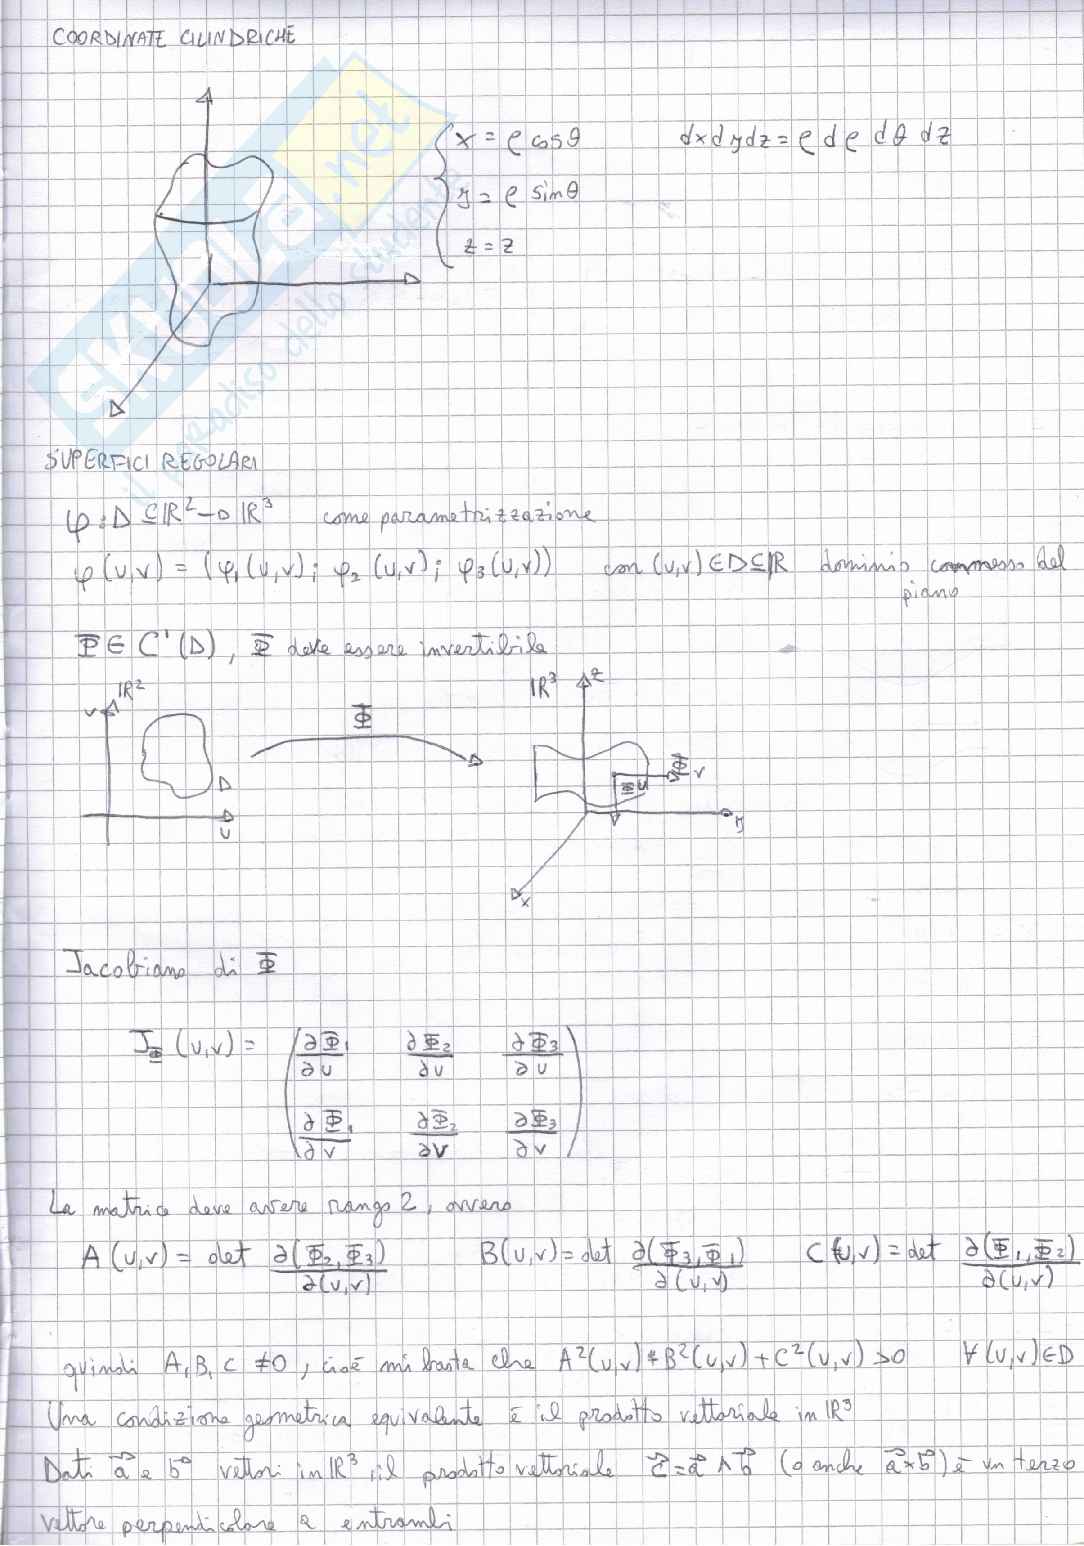 COORDINATE CILINDRICHE
x = ρ cosθ
dxdydz = ρ dρ dθ dz
y = ρ sinθ
z = z
SKUOLA.net
il paradiso dello studente
SUPERFICI REGOLARI
φ: D ⊆ ℝ² → ℝ³ come parametrizzazione
φ(u,v) = (φ₁(u,v); φ₂(u,v); φ₃(u,v)) con (u,v) ∈ D ⊆ ℝ dominio connesso del
piano
Φ ∈ C¹(D), Φ deve essere invertibile
v ℝ² Φ ℝ³ z
D Φu Φv
u y
x
Jacobiano di Φ
J_Φ (u,v) = ( ∂Φ₁/∂u ∂Φ₂/∂u ∂Φ₃/∂u
∂Φ₁/∂v ∂Φ₂/∂v ∂Φ₃/∂v )
La matrice deve avere rango 2, ovvero
A(u,v) = det ∂(Φ₂,Φ₃)/∂(u,v) B(u,v) = det ∂(Φ₃,Φ₁)/∂(u,v) C(u,v) = det ∂(Φ₁,Φ₂)/∂(u,v)
quindi A, B, C ≠ 0, cioè mi basta che A²(u,v) + B²(u,v) + C²(u,v) > 0 ∀(u,v) ∈ D
Una condizione geometrica equivalente è il prodotto vettoriale in ℝ³
Dati a⃗ e b⃗ vettori in ℝ³, il prodotto vettoriale c⃗ = a⃗ ∧ b⃗ (o anche a⃗ × b⃗) è un terzo
vettore perpendicolare a entrambi